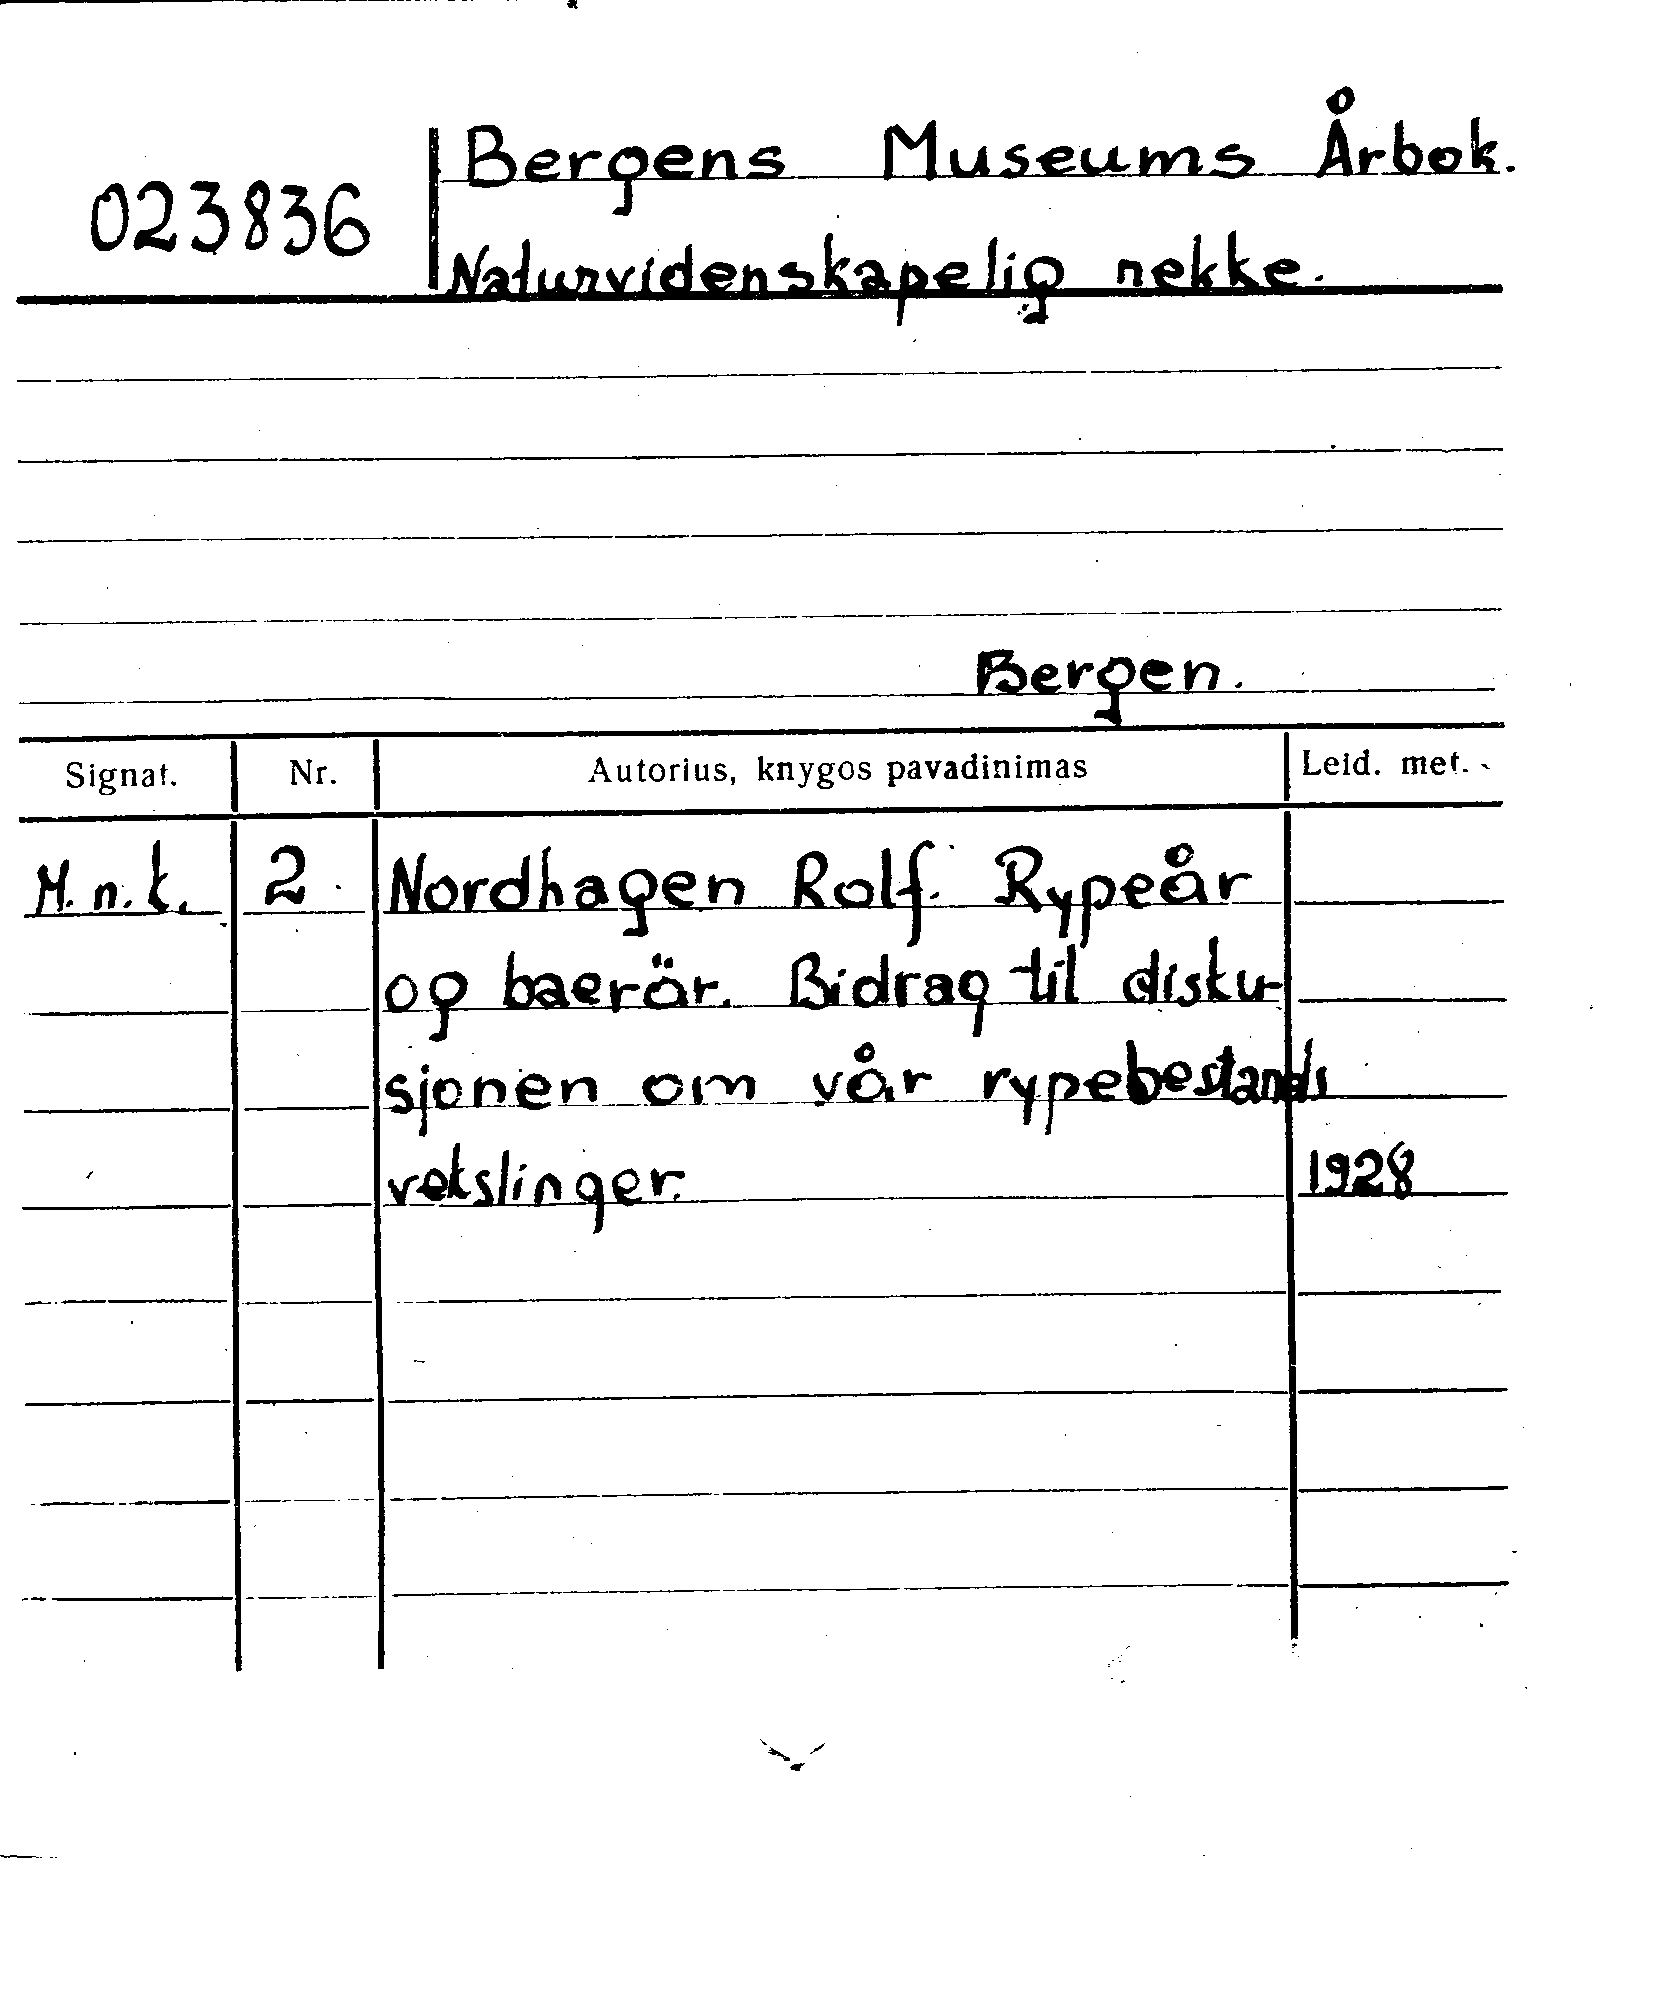 Bergens Museums Årbok.
023836
Naturvidenskapelig nekke.
Bergen.
Signat. Nr. Autorius, knygos pavadinimas Leid. met.
M.n.k. 2. Nordhagen Rolf. Rypeår
og baerär. Bidrag til disku-
sjonen om vår rypebestands
vekslinger. 1928